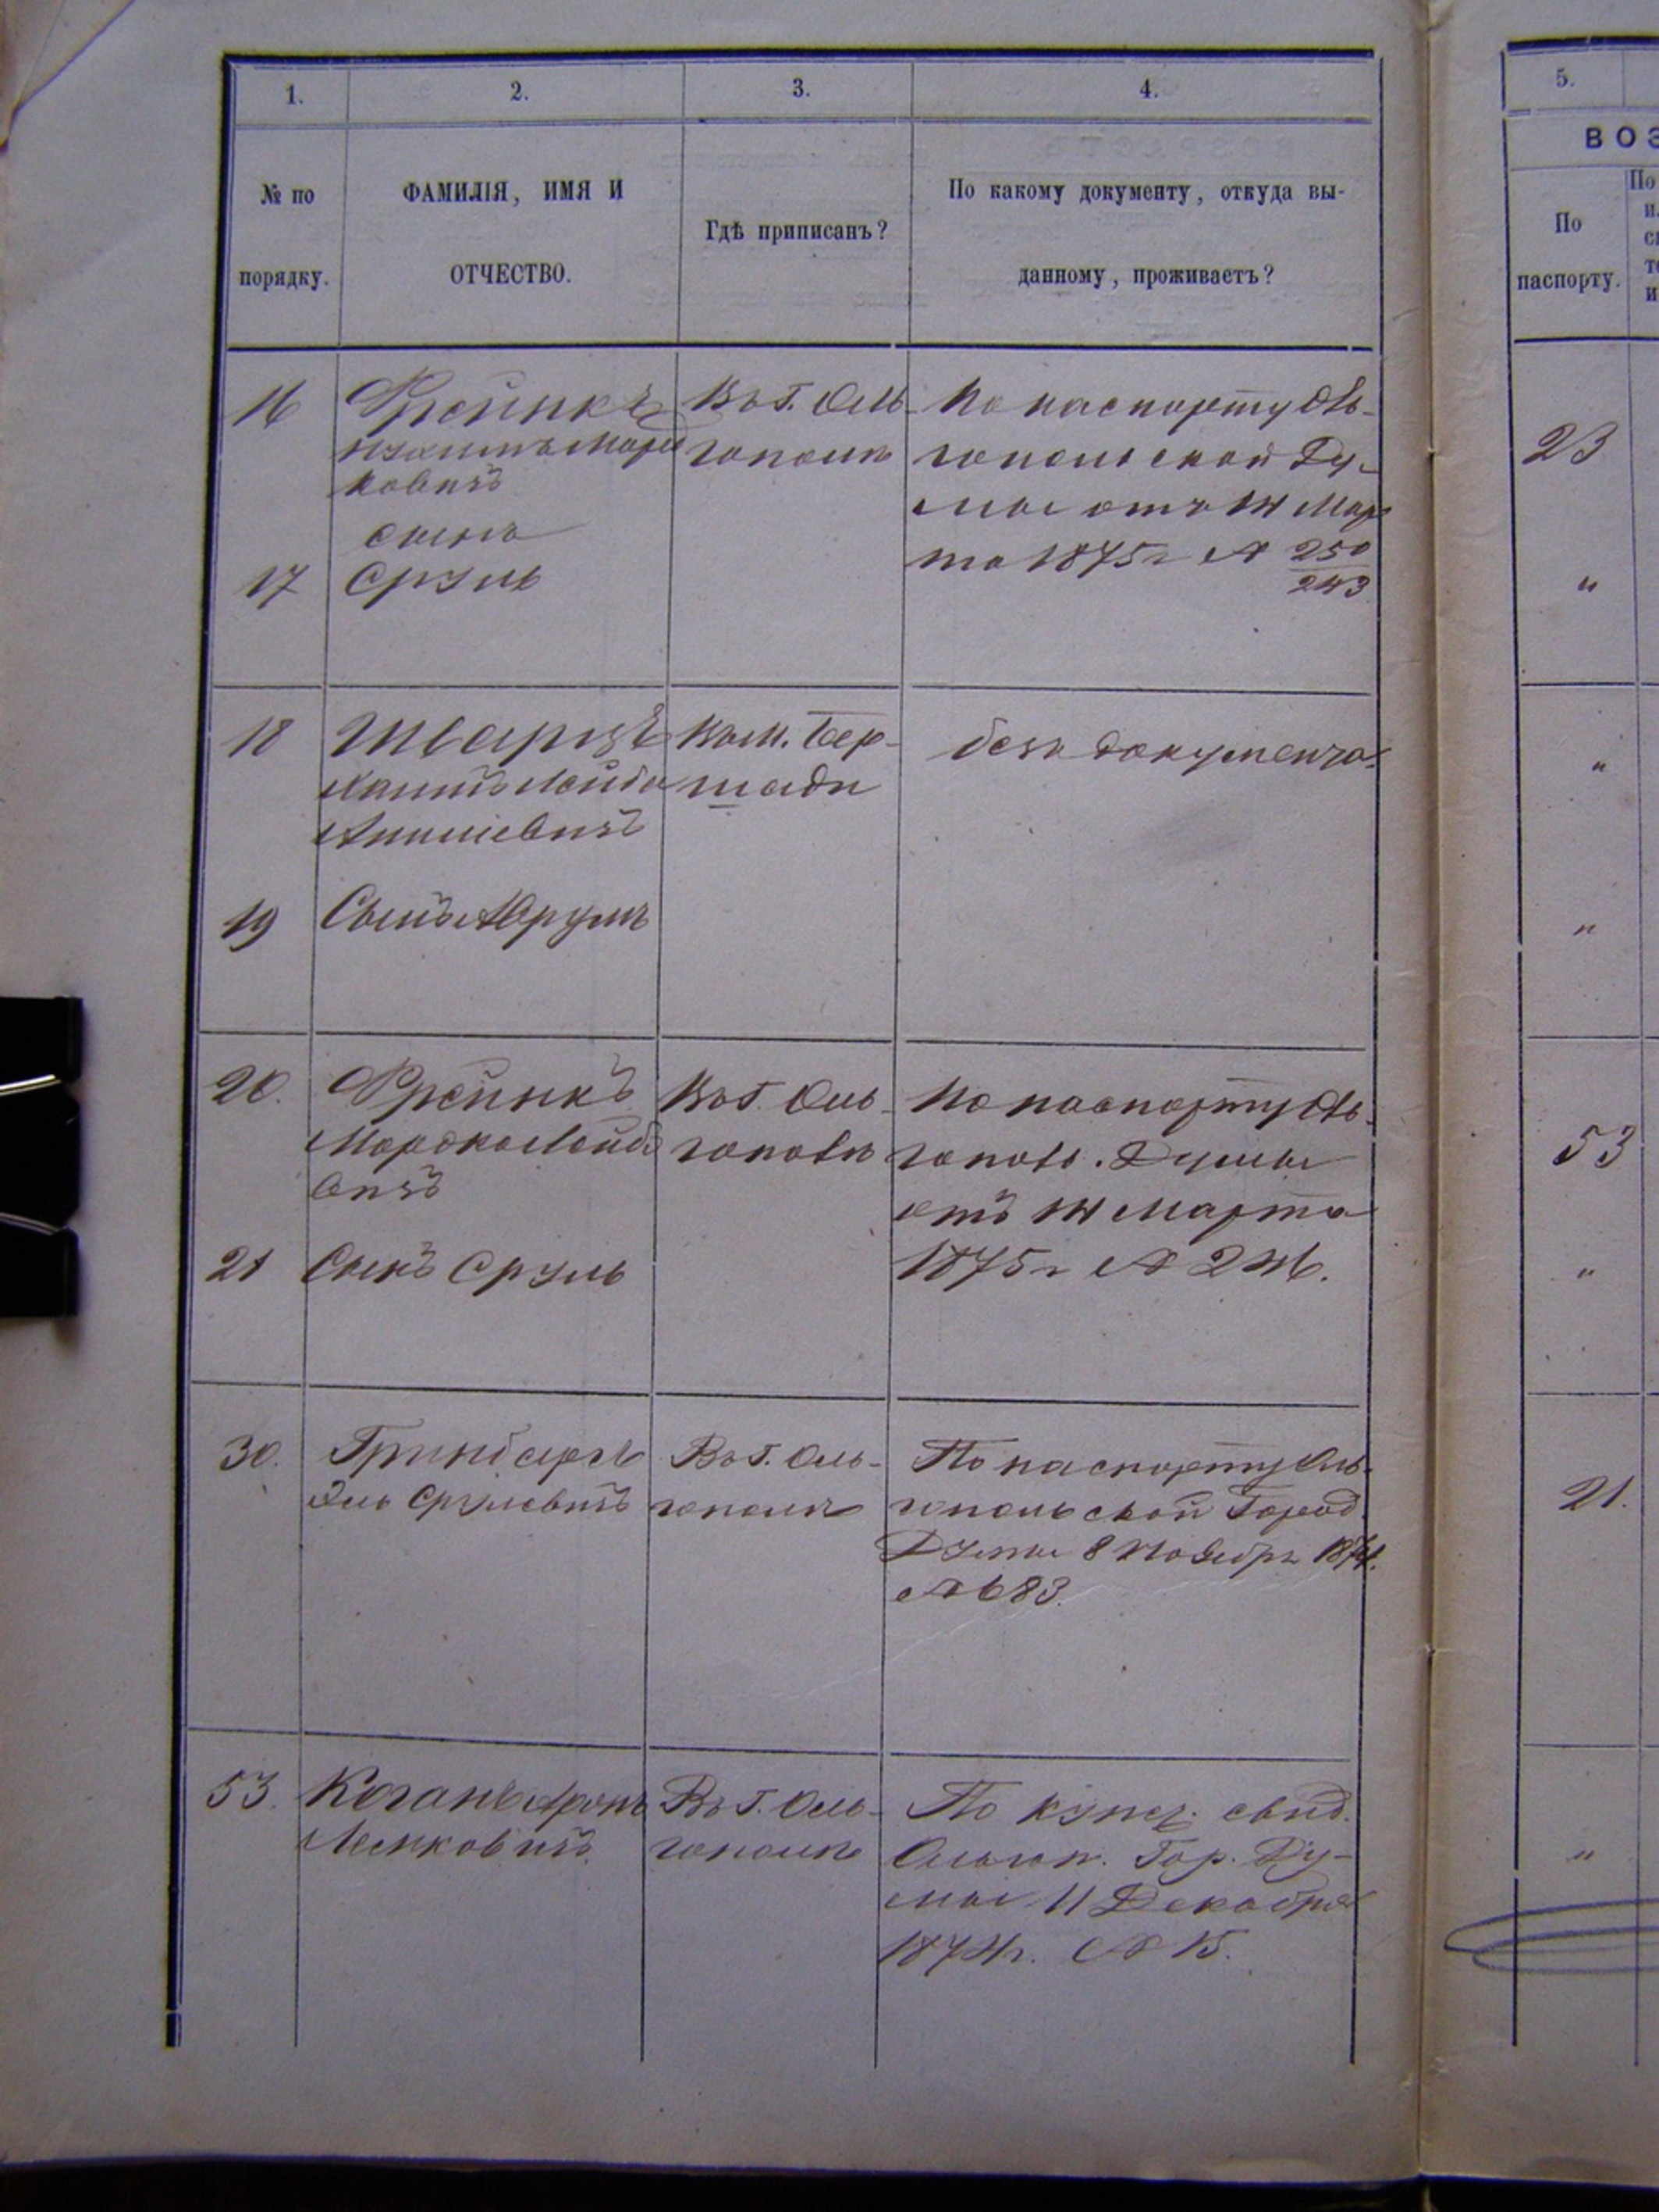 1.
2.
3.
4.
5.
ВОЗ
№ по
порядку.
ФАМИЛІЯ, ИМЯ И
ОТЧЕСТВО.
Гдѣ приписанъ?
По какому документу, откуда вы-
данному, проживаетъ?
По
паспорту.
По
16
Фрейнкъ
ковичъ
сынъ
Въ г. Оль-
гополѣ
По паспорту Оль-
гопольской Ду-
мы отъ 14 Мар
та 1875 г № 250
243
23
17
Сруль
"
18
Шварцъ
Лейба
Въ м. Бер-
шади
безъ документа.
"
19
Сынъ Аврумъ
"
20.
Фрейнкъ
Мордко Лейбо
вичъ
Въ г. Оль-
гополѣ
По паспорту Оль-
гопол. Думы
отъ 14 Марта
1875 г № 246.
53
21
Сынъ Сруль
"
30.
Гринбергъ
Эль Срулевичъ
Въ г. Оль-
гополѣ
По паспорту Оль-
гопольской Город.
Думы 8 Ноября 1874.
№ 683.
21.
53.
Коганъ Аронъ
Въ г. Оль-
гополѣ
По купеч. свид.
Ольгоп. Гор. Ду-
мы 11 Декабря
1874 г. № 15.
"